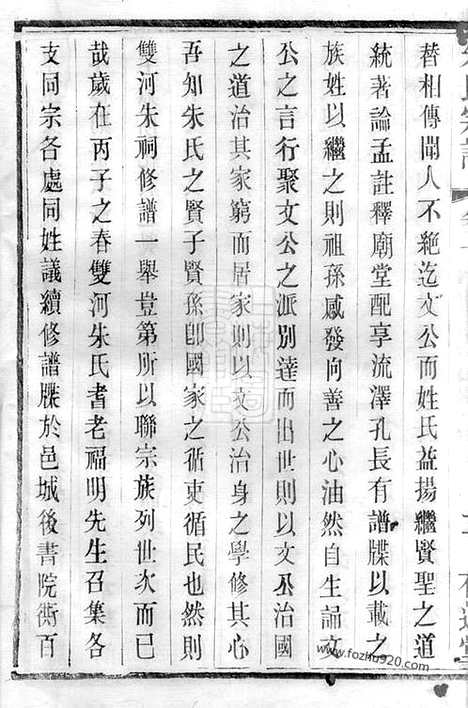 替相傳聞人不絶迄文公而姓氏益揚繼賢聖之道
統著論孟註釋廟堂配享流澤孔長有譜牒以載之
族姓以繼之則祖孫感發向善之心油然自生誦文
公之言行聚文公之派別達而出世則以文公治國
之道治其家窮而居家則以文公治身之學修其心
吾知朱氏之賢子賢孫卽國家之循吏循民也然則
雙河朱祠修譜一舉豈第所以聯宗族列世次而已
哉歲在丙子之春雙河朱氏耆老福明先生召集各
支同宗各處同姓議續修譜牒於邑城後書院街百
www.fozhu920.com